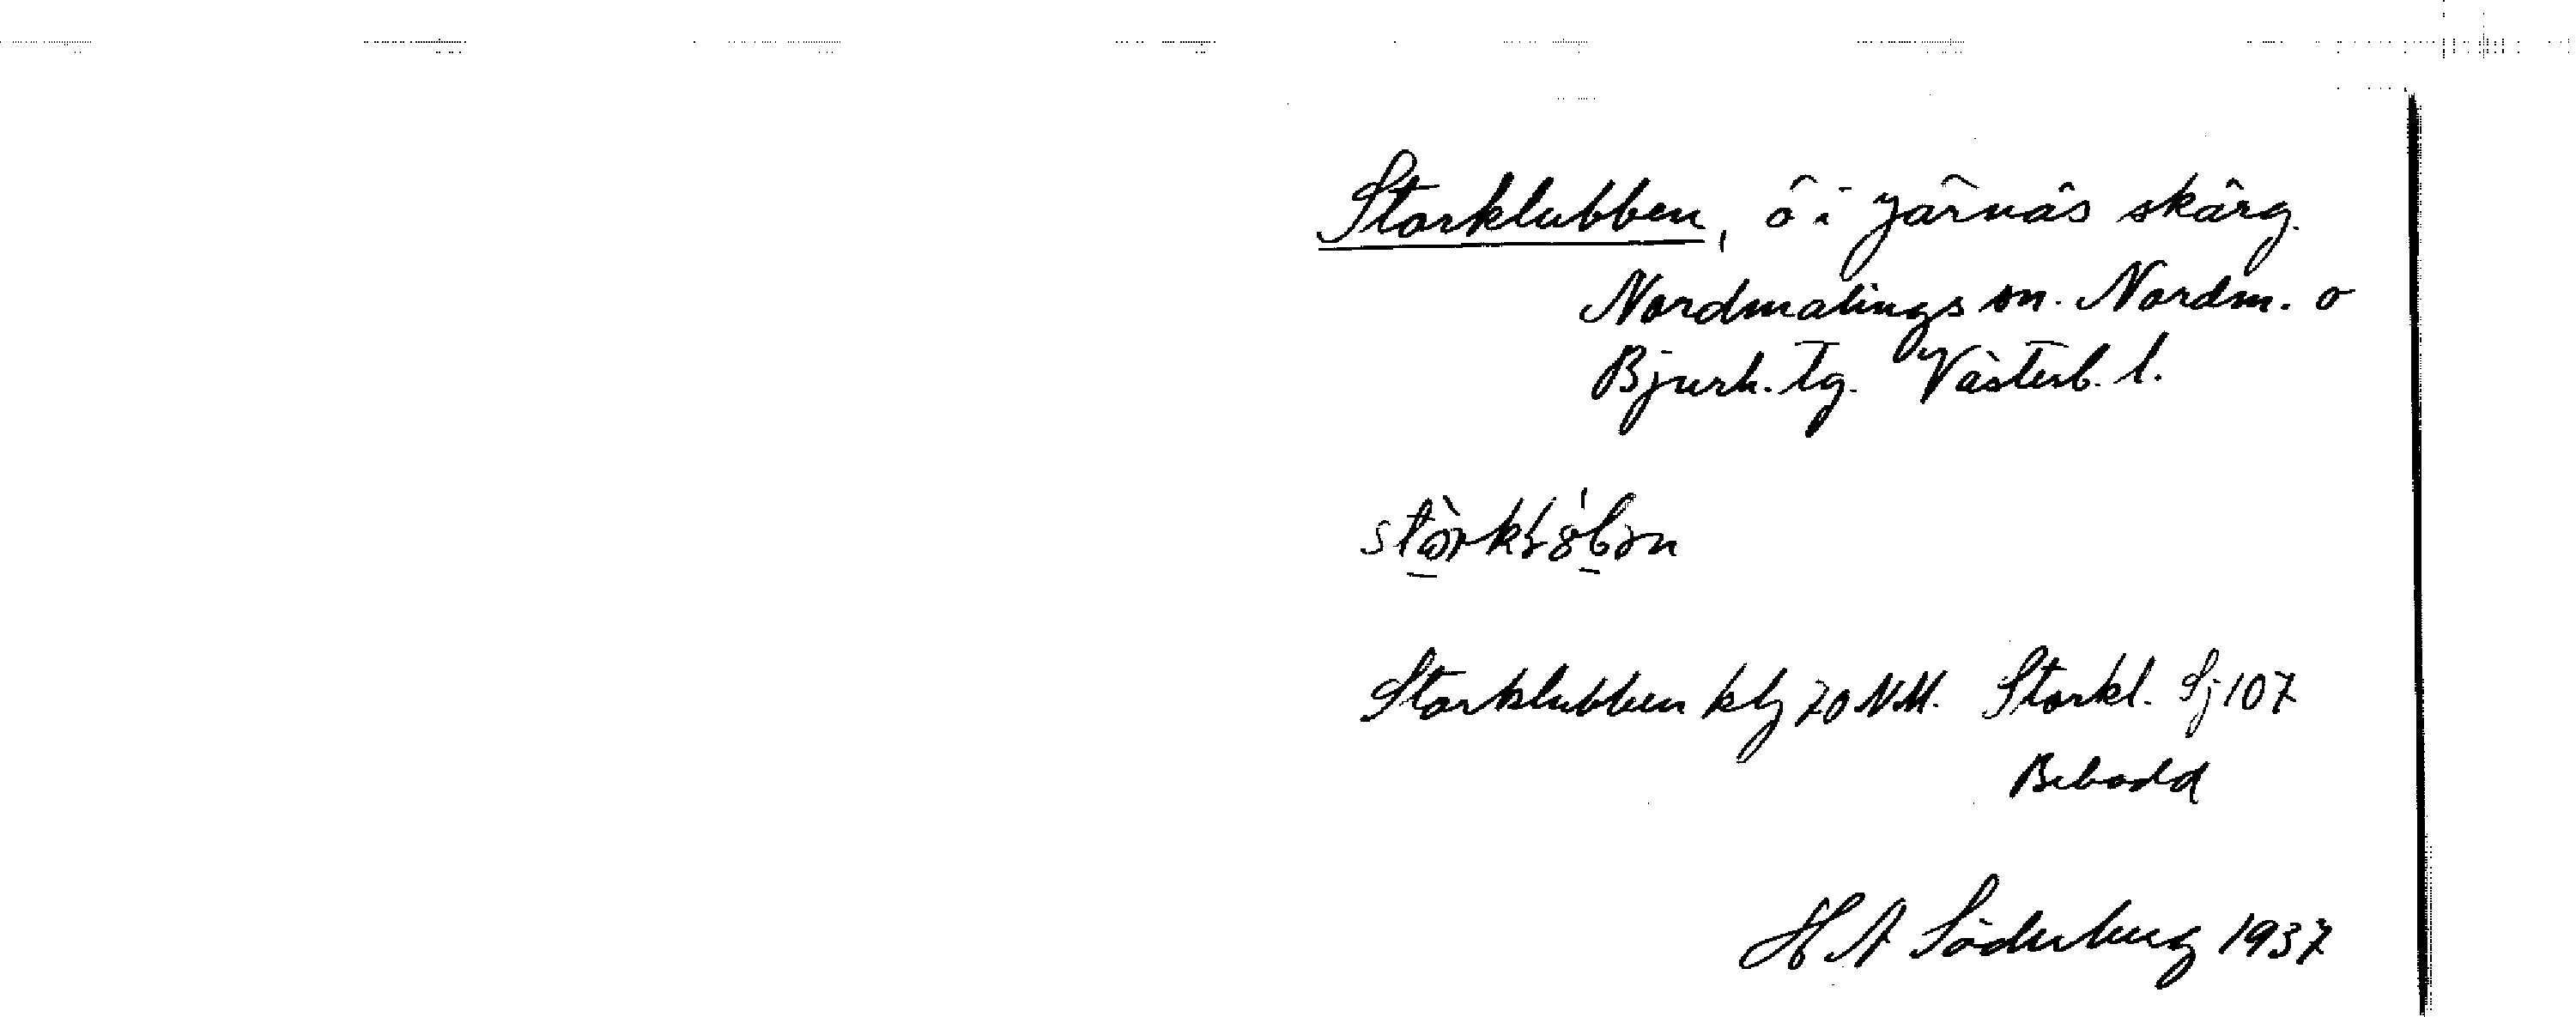 Storklubben, ö i Järnäs skärg.
Nordmalings sn. Nordm. o
Bjurh. Tg. Västerb. l.
Storklubben klj 70 NM. Storkl. Sj 107
Bebodd
H A Söderberg 1937